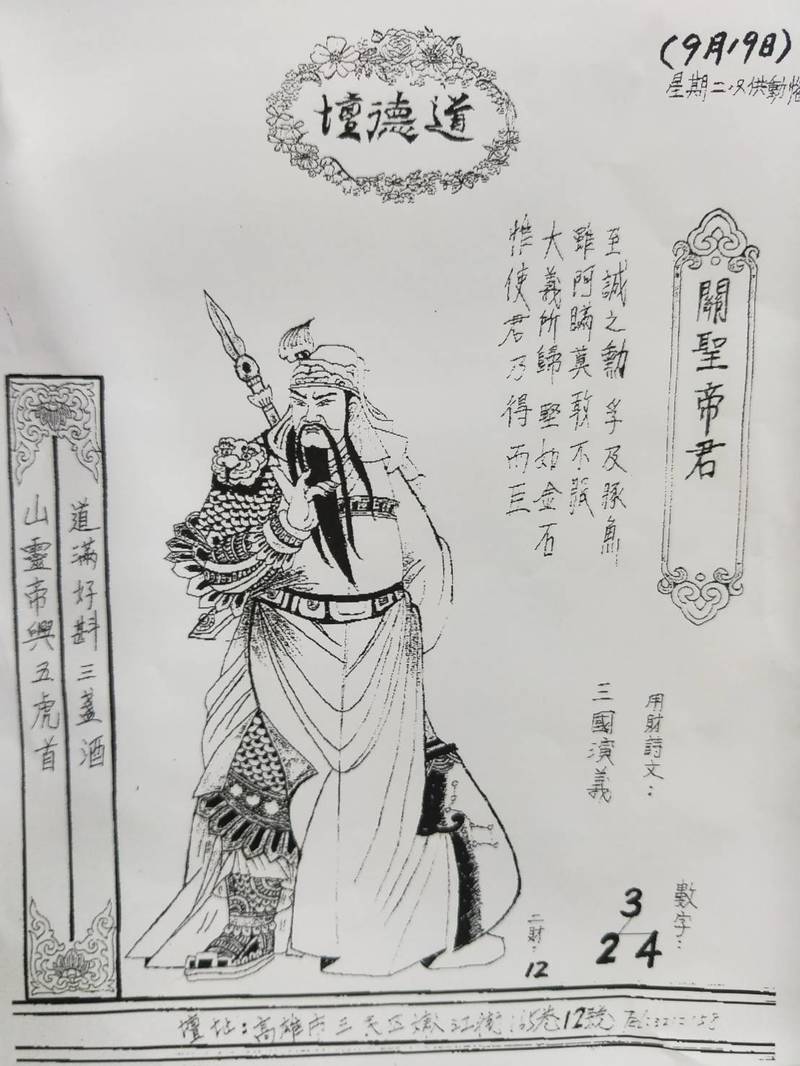 (9月19日)
星期二
道德壇
關聖帝君
至誠之勳孚及豚魚
雖阿瞞莫敢不服
大義所歸堅如金石
惟使君乃得而臣
用財詩文：
三國演義
數字：
3
2 4
二財：
12
道滿好斟三盞酒
山靈帝興五虎首
壇址：高雄市三民區嫩江街165巷12號